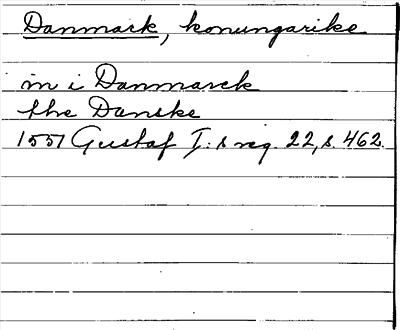 Danmark, konungarike
in i Danmarck
the Danske
1557 Gustaf I:s reg. 22, s. 462.